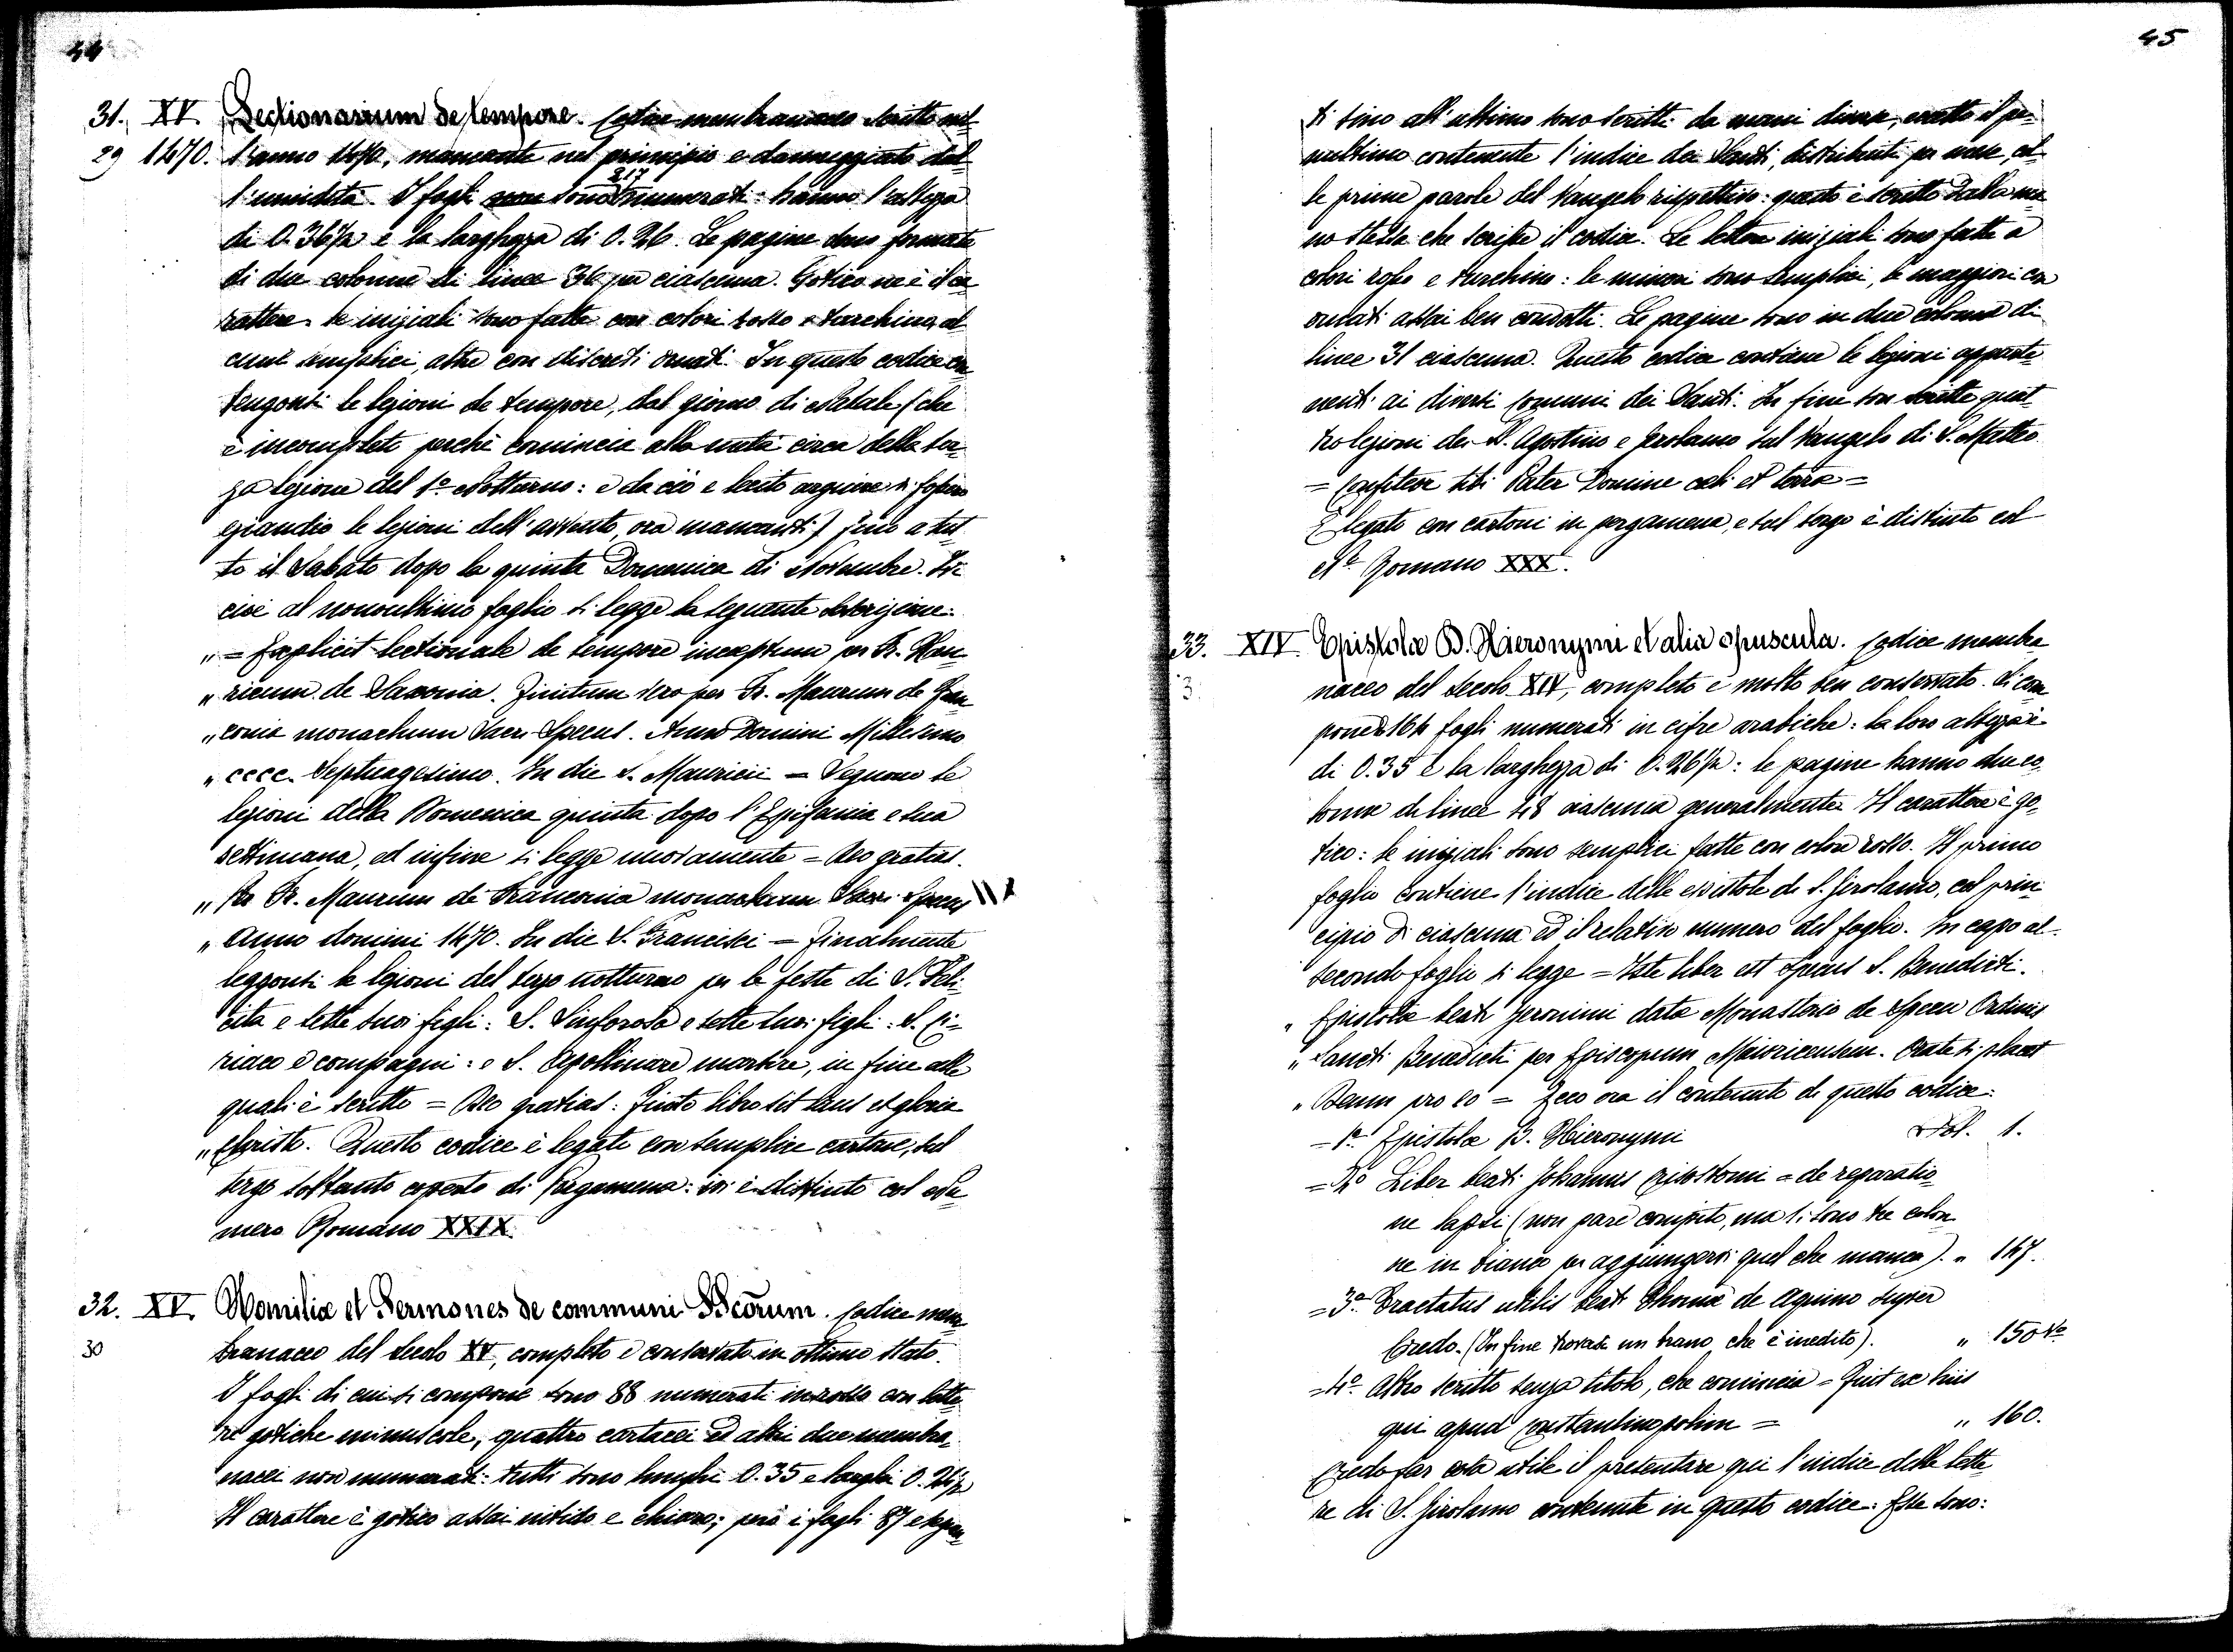 44
31. XV. Lectionarium de tempore. Codice membranaceo scritto nel-
29 1470. l'anno 1470, mancante nel principio e danneggiato dal-
l'umidità. I fogli non sono 217 numerati: hanno l'altezza
di 0.36½ e la larghezza di 0.26. Le pagine sono formate
di due colonne di linee 36 per ciascuna. Gotico ne è il ca-
rattere: le iniziali sono fatte con colori rosso e turchino, al-
cune semplici, altre con discreti ornati. In questo codice con-
tengonsi le lezioni de tempore, dal giorno di Natale (che
è incompleto perchè comincia alla metà circa della ter-
za lezione del 1º Notturno: e da ciò è lecito arguire vi fossero
eziandio le lezioni dell'avvento, ora mancanti) fino a tut-
to il Sabato dopo la quinta Domenica di Novembre. Ivi
cioè al nonultimo foglio si legge la seguente iscrizione:
„ = Explicit lectionale de tempore inceptum per Fr. Hen-
„ ricum de Saxonia. Finitum vero per Fr. Maurum de Fran-
„ conia monachum Sacri Specus. Anno Domini Millesimo
„ cccc. Septuagesimo. In die S. Mauricii = Seguono le
lezioni della Domenica quinta dopo l'Epifania e sua
settimana, ed infine si legge nuovamente = Deo gratias.
„ Per Fr. Maurum de Franconia monachum Sacri Specus
„ Anno domini 1470. In die S. Francisci = Finalmente
leggonsi le lezioni del terzo notturno per le feste di S. Feli-
cita e sette suoi figli: S. Sinforosa e sette suoi figli: S. Ci-
riaco e compagni: e S. Apollinare martire, in fine alle
quali è scritto = Deo gratias: Finito libro sit laus et gloria
„ Christo. Questo codice è legato con semplice cartone, sul
tergo soltanto coperto di pergamena: ivi è distinto col nu-
mero Romano XXIX.
32. XV. Homiliæ et Sermones de communi SScorum. Codice mem-
30 branaceo del Secolo XV, completo e conservato in ottimo stato.
I fogli di cui si compone sono 88 numerati in rosso con lette-
re gotiche minuscole, quattro cartacei ed altri due membra-
nacei non numerati: tutti sono lunghi 0.35 e larghi 0.24½
Il carattere è gotico assai nitido e chiaro; però i fogli 87 e seguen-
45
ti sino all'ultimo sono scritti da mani diverse, eccetto il pe-
nultimo contenente l'indice dei Santi, distribuiti per mese, col-
le prime parole del Vangelo rispettivo: questo è scritto dalla ma-
no stessa che scrisse il codice. Le lettere iniziali sono fatte a
colori rosso e turchino: le minori sono semplici, le maggiori con
ornati assai ben condotti. Le pagine sono in due colonne di
linee 31 ciascuna. Questo codice contiene le lezioni apparte-
nenti ai diversi Comuni dei Santi. In fine son scritte quat-
tro lezioni dei S. Agostino e Girolamo sul Vangelo di S. Matteo
= Confiteor tibi Pater Domine cœli et terræ =
È legato con cartoni in pergamena, e sul tergo è distinto col
Nº Romano XXX.
33. XIV. Epistolæ B. Hieronymi et alia opuscula. Codice membra
3 naceo del Secolo XIV, completo e molto ben conservato. Si com-
pone di 164 fogli numerati in cifre arabiche: la loro altezza è
di 0.35 e la larghezza di 0.26½: le pagine hanno due co-
lonne di linee 48 ciascuna generalmente. Il carattere è go-
tico: le iniziali sono semplici fatte con colore rosso. Il primo
foglio contiene l'indice delle epistole di S. Girolamo, col prin-
cipio di ciascuna ed il relativo numero del foglio. In capo al
secondo foglio si legge = Iste liber est Specus S. Benedicti.
„ Epistolæ beati Jeronimi datæ Monasterio de Specu Ordinis
„ Sancti Benedicti per Episcopum Maioricensem. Orate si placet
„ Deum pro eo = Ecco ora il contenuto di questo codice:
= 1º Epistolæ B. Hieronymi Fol. 1.
= 2º Liber beati Johannis Crisostomi = de reparatio-
ne lapsi (non pare compito, ma vi sono tre colon-
ne in bianco per aggiungervi quel che manca). „ 147.
= 3º Tractatus utilis beati Thomæ de Aquino super
Credo. (In fine trovasi un brano che è inedito). „ 150 vº
= 4º Altro scritto senza titolo, che comincia = Fuit ex hiis
qui apud Constantinopolim = „ 160.
Credo far cosa utile il presentare qui l'indice delle lette-
re di S. Girolamo contenute in questo codice: Esse sono: